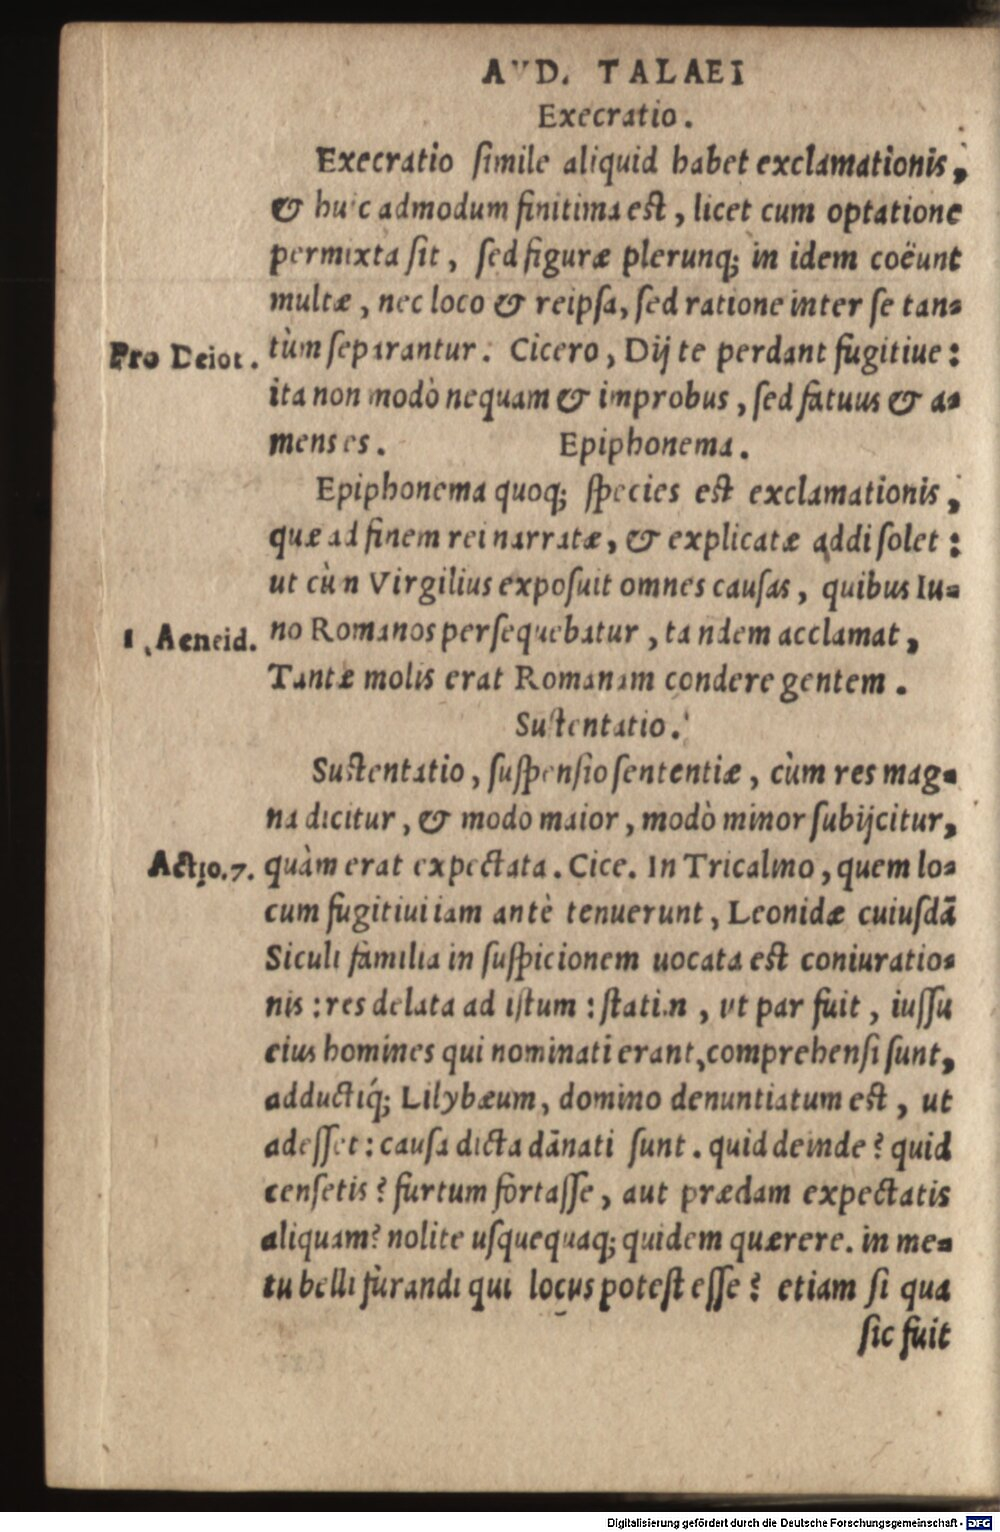 AVD. TALAEI
Execratio.
Execratio simile aliquid habet exclamationis,
& huic admodum finitima est, licet cum optatione
permixta sit, sed figuræ plerunq; in idem coëunt
multæ, nec loco & reipsa, sed ratione inter se tan-
Pro Deiot. tùm separantur. Cicero, Dij te perdant fugitiue:
ita non modò nequam & improbus, sed fatuus & a-
mens es. Epiphonema.
Epiphonema quoq; species est exclamationis,
quæ ad finem rei narratæ, & explicatæ addi solet:
ut cùm Virgilius exposuit omnes causas, quibus Iu-
1. Aeneid. no Romanos persequebatur, tandem acclamat,
Tantæ molis erat Romanam condere gentem.
Sustentatio.
Sustentatio, suspensio sententiæ, cùm res mag-
na dicitur, & modo maior, modò minor subijcitur,
Actio.7. quàm erat expectata. Cice. In Tricalmo, quem lo-
cum fugitiui iam antè tenuerunt, Leonidæ cuiusdã
Siculi familia in suspicionem uocata est coniuratio-
nis: res delata ad istum: statim, vt par fuit, iussu
eius homines qui nominati erant, comprehensi sunt,
adductíq; Lilybæum, domino denuntiatum est, ut
adesset: causa dicta dãnati sunt. quid deinde? quid
censetis? furtum fortasse, aut prædam expectatis
aliquam? nolite usquequaq; quidem quærere. in me-
tu belli fùrandi qui locus potest esse? etiam si qua
sic fuit
Digitalisierung gefördert durch die Deutsche Forschungsgemeinschaft - DFG